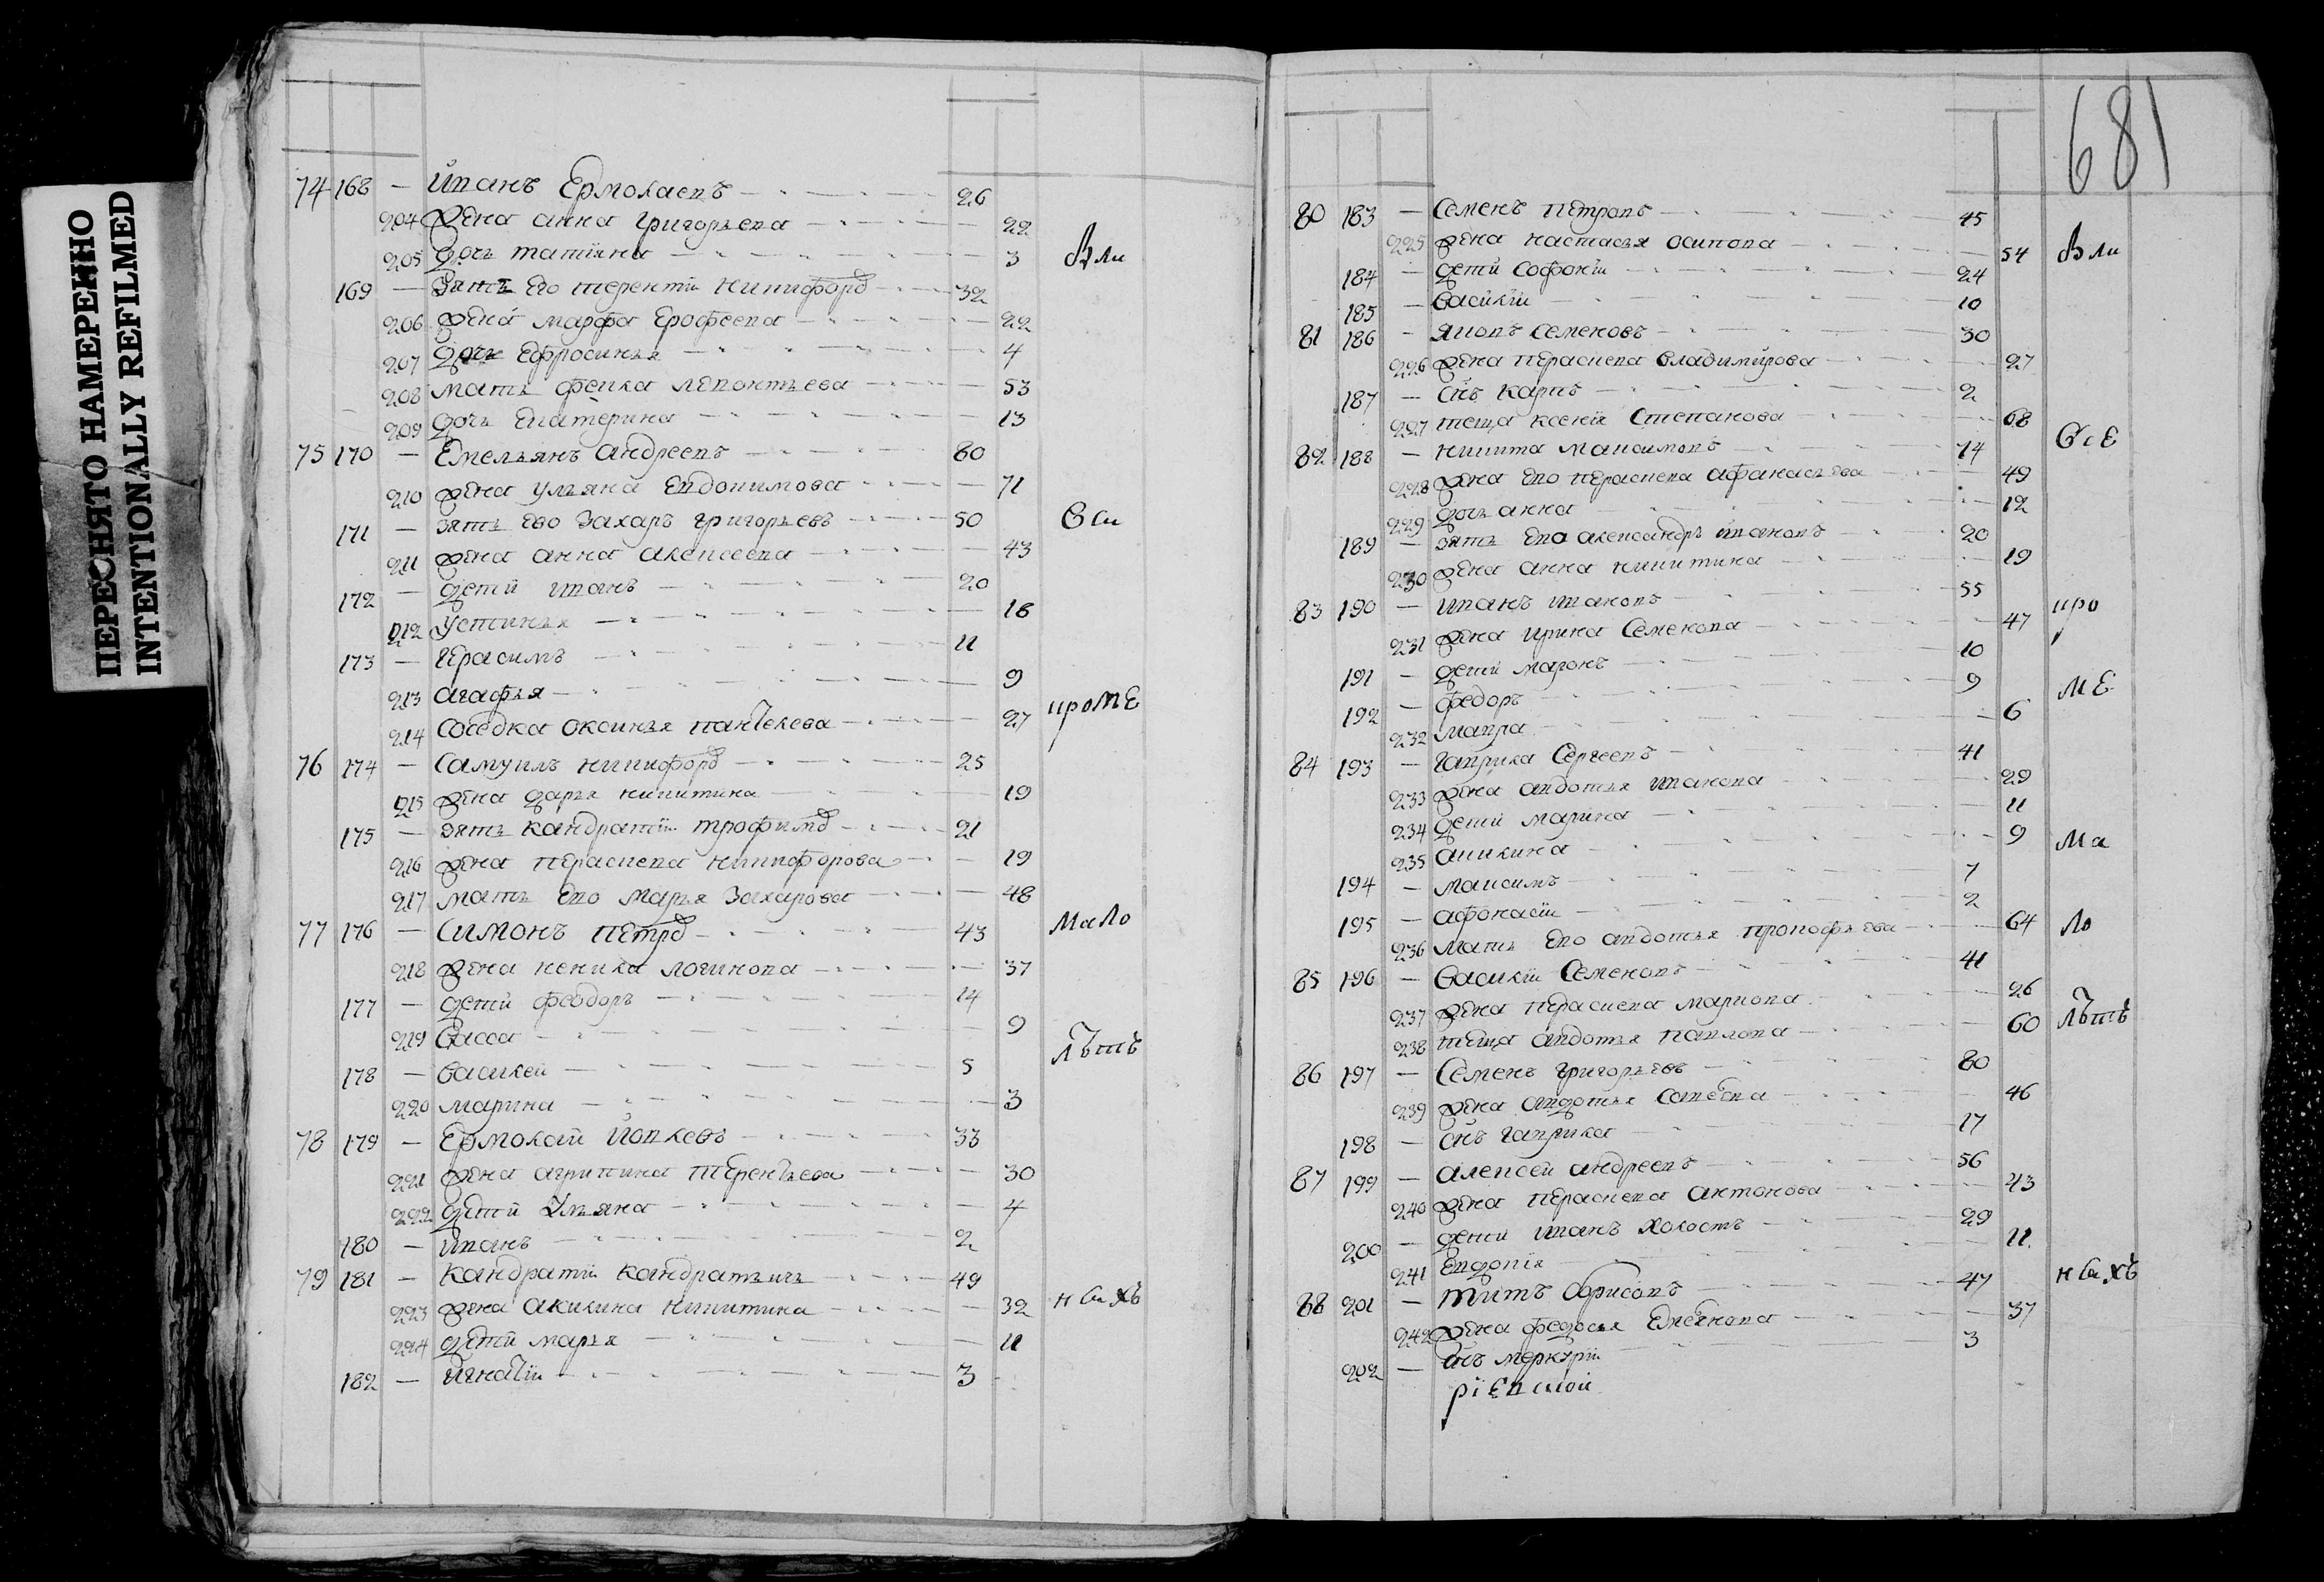 ПЕРЕСНЯТО НАМЕРЕННО
INTENTIONALLY REFILMED
681
74 168 — Иванъ Ермолаевъ 26
204 жена анна григорьева 22
205 дочь татіяна 3 Вли
169 — Зять Его терентій никифоровъ 32
206 жена марфа Ерофеева 22
207 дочь Ефросинья 4
208 мать фекла леонтьева 53
209 дочь Екатерина 13
75 170 — Емельянъ андреевъ 80
210 жена ульяна Евдокимова 71
171 — зять Его Захаръ григорьевъ 50
211 жена анна алексеева 43
172 — дети иванъ 20
212 устинья 18
173 — герасимъ 11
213 агафья 9
214 соседка оксинья пантелева 27 кроме
76 174 — Самуилъ никифоровъ 25
215 жена дарья никитина 19
175 — зять кандратій трофимовъ 21
216 жена параскева никифорова 19
217 мать Ево Марья Захарова 48
77 176 — Симонъ петровъ 43 мало
218 жена логинова 37
177 — дети феодоръ 14
219 васса 9
178 — василей 5 лѣтъ
220 марина 3
78 179 — Ермолай 33
221 жена агрипина терентьева 30
222 дети Ульяна 4
180 — иванъ 2
79 181 — кандратій кандратьичь 49
223 жена акилина никитина 32
224 дети марья 11
182 — игнатій 3
80 183 — Семенъ петровъ 45
225 жена настасья осипова 54 Вли
184 — дети софоній 24
185 — василій 10
81 186 — яковъ семеновъ 30
226 жена параскева владимирова 27
187 — снъ карпъ 2
227 теща ксенія Степанова 68
82 188 — никита максимовъ 74 все
228 жена Ево параскева афанасьева 49
229 дочь анна 12
189 — зять Ево александръ ивановъ 20
230 жена анна никитина 19
83 190 — иванъ ивановъ 55 кро
231 жена ирина Семенова 47
191 — дети маронъ 10
192 — федоръ 9 ме
232 мавра 6
84 193 — гаврила Сергеевъ 41
233 жена авдотья иванова 29
234 дети марина 11
235 акилина 9 ма
194 — максимъ 7
195 — афонасій 2
236 мать Ево авдотья прокофьева 64 ло
85 196 — василій Семеновъ 41
237 жена параскева маркова 26
238 теща авдотья павлова 60 лѣтъ
86 197 — Семенъ григорьевъ 80
239 жена авдотья савѣева 46
198 — снъ гаврила 17
87 199 — алексей андреевъ 56
240 жена параскева антонова 43
200 — дети иванъ холостъ 29
241 11
88 201 — титъ борисовъ 47
242 жена федосья 37
202 — снъ меркурій 3
ріевской